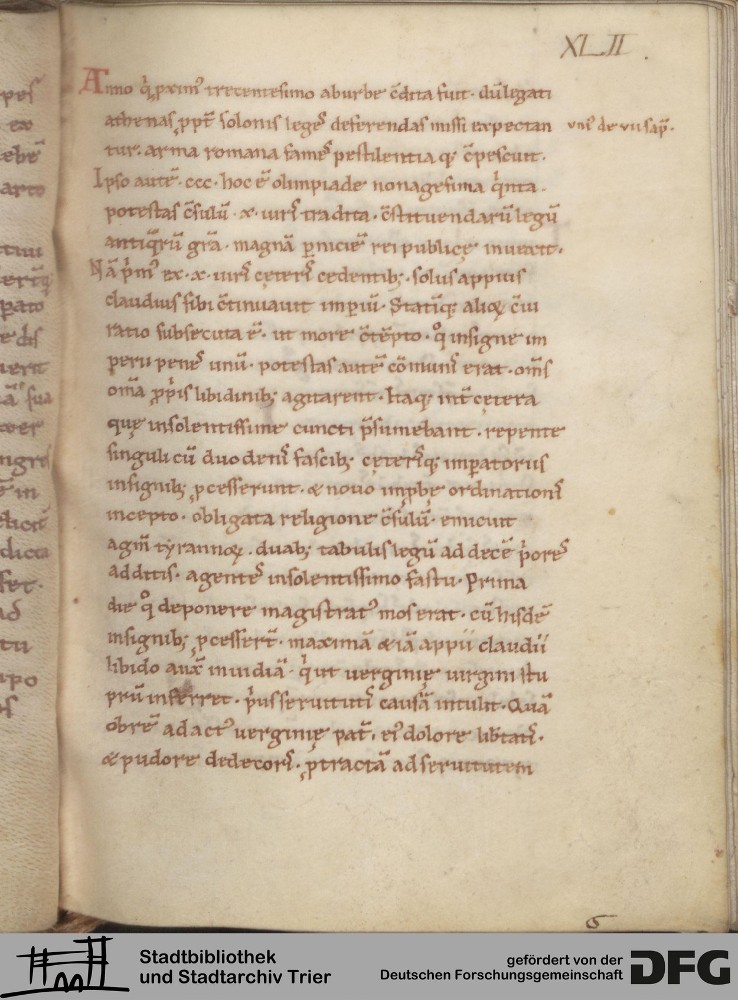 XLII.
Anno q̄ pxim᷒ trecentesimo aburbe c̄dita fuit. dū legati
athenas ppt̄ solonis leges deferendas missi expectan
vn᷒ de vii sap̄.
tur. arma romana fames pestilentia q; c̄pescuit.
Ipso autē .ccc. hoc ē olimpiade nonagesima q̄nta.
potestas c̄sulū .x. uiris tradita. c̄stituendarū legū
antiq̄rū grā. magnā pniciē rei publicę inuexit.
Nā pm᷒ ex .x. uiris cęteris cedentib; solus appius
claudius sibi c̄tinuauit impiū. Statiq; alioꝝ c̄iu
ratio subsecuta ē. ut more c̄tēpto. qͦ insigne im
perii penes unū. potestas autē cōmunis erat. om̄s
om̄a ꝓp̄is libidinib; agitarent. Itaq; int̄ cetera
quę insolentissime cuncti p̄sumebant. repente
singuli cū duodenis fascib; cęterisq; impatoriis
insignib; ꝓcesserunt. & nouo impbe ordinationis
incepto. obligata religione c̄sulū. emicuit
agm̄ tyrannoꝝ. duab; tabulis legū ad decē p̄ores
additis. agentes insolentissimo fastu. Prima
die qͦ deponere magistrat᷒ mos erat. cū hisdē
insignib; ꝓcesser̄t. maximā & iā appii claudii
libido aux̄ inuidiā. q̄ ut uerginię uirgini stu
prū inferret. p̄us seruitutis causā intulit. Quā
obrē adact᷒ uerginię pat̄. ei᷒ dolore lib̄tatis.
& pudore dedecoris. ꝓtractā ad seruitutem
6
Stadtbibliothek
und Stadtarchiv Trier
gefördert von der
Deutschen Forschungsgemeinschaft
DFG